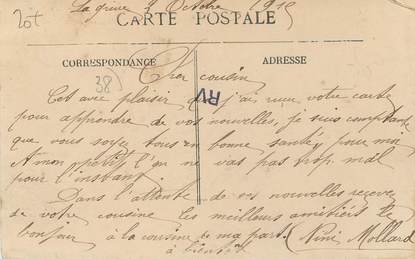 La grive 9 Octobre 1915
CARTE POSTALE
20t
CORRESPONDANCE
ADRESSE
38)
Cher cousin
RV
Cet avec plaisir que j'ais reçu votre carte
pour apprendre de vos nouvelles, je suis comptante
que vous soyez tous en bonne santé, pour moi
A mon petit l'on ne vas pas trop mal
pour l'instant.
Dans l'attente de vos nouvelles recevez
de votre cousine les meilleurs amitiers le
bonjour à la cousine de ma part (Nini Mollard
à bientôt